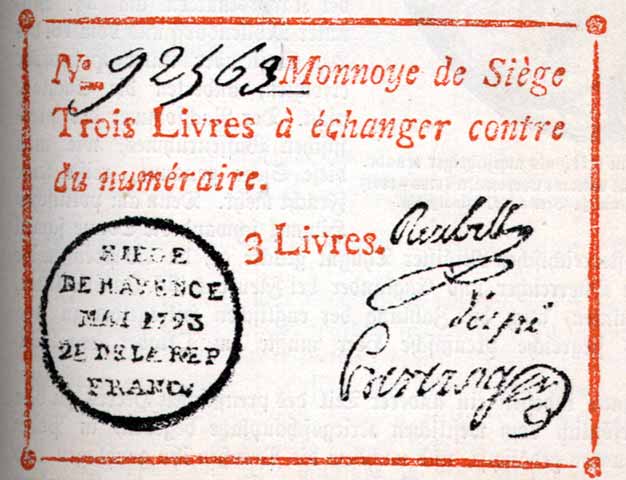 No. 92563 Monnoye de Siège
Trois Livres à échanger contre
du numéraire.
3 Livres.
Reubell
SIEGE
DE MAYENCE
MAI 1793
2E DE LA REP
FRANC.